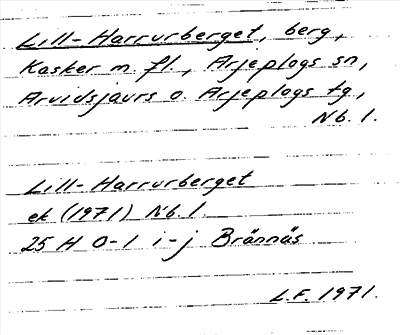 Lill-Harrurberget, berg,
Kasker m. fl., Arjeplogs sn,
Arvidsjaurs o. Arjeplogs tg,
Nb. l.
Lill-Harrurberget
ek (1971) Nb. l.
25 H 0-1 i-j Brännäs
L.F. 1971.